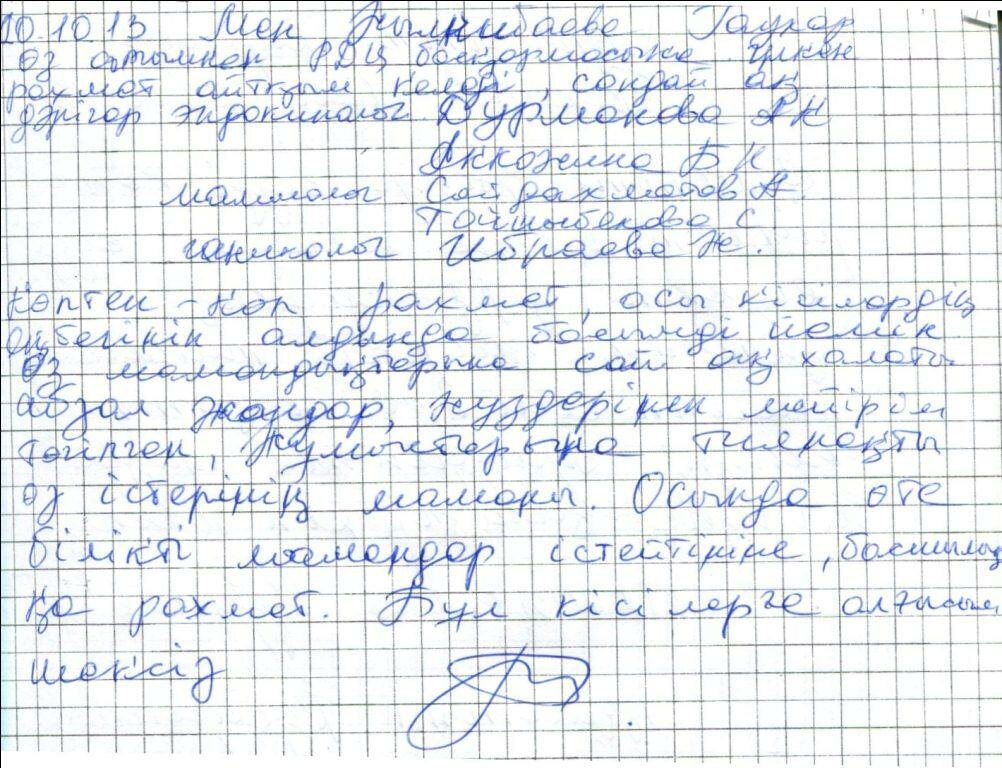 10.10.13 Мен Жылқыбаева Гаухар
өз атымнан РДЦ басқармасына үлкен
рахмет айтқым келеді, сондай ақ
дәрігер эндокинолог Дурманова А К
Аккожина Б К
маммолог Сайдахматов А.
Тойшыбекова С.
гиниколог Ибраева Ж.
Көптен - көп рахмет, осы кісілердің
еңбегінің алдында басымды иемін
Өз мамандықтарына сай ақ халаты
абзал жандар, жүздерінен мейірім
төгілген, жұмыстарына тиянақты
өз істерінің маманы. Осында өте
білікті мамандар істейтініне, басшылық
қа рахмет. Бұл кісілерге алғысым
шексіз